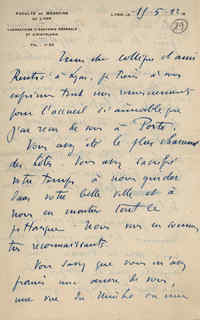 FACULTÉ DE MÉDECINE
DE LYON
LABORATOIRES D'ANATOMIE GÉNÉRALE
ET D'HISTOLOGIE
LYON, le 19-5-22
Mon cher collègue et ami
Rentré à Lyon, je tiens à vous
exprimer tous mes remerciements
pour l'accueil si aimable que
j'ai reçu de vous à Porto.
Vous avez été le plus charmant
des hôtes. Vous avez sacrifié
votre temps à nous guider
dans votre belle ville et à
nous en montrer tout le
pittoresque. Nous vous en sommes
très reconnaissants.
Vous savez que vous m'avez
promis une
une vue du Minho ou une